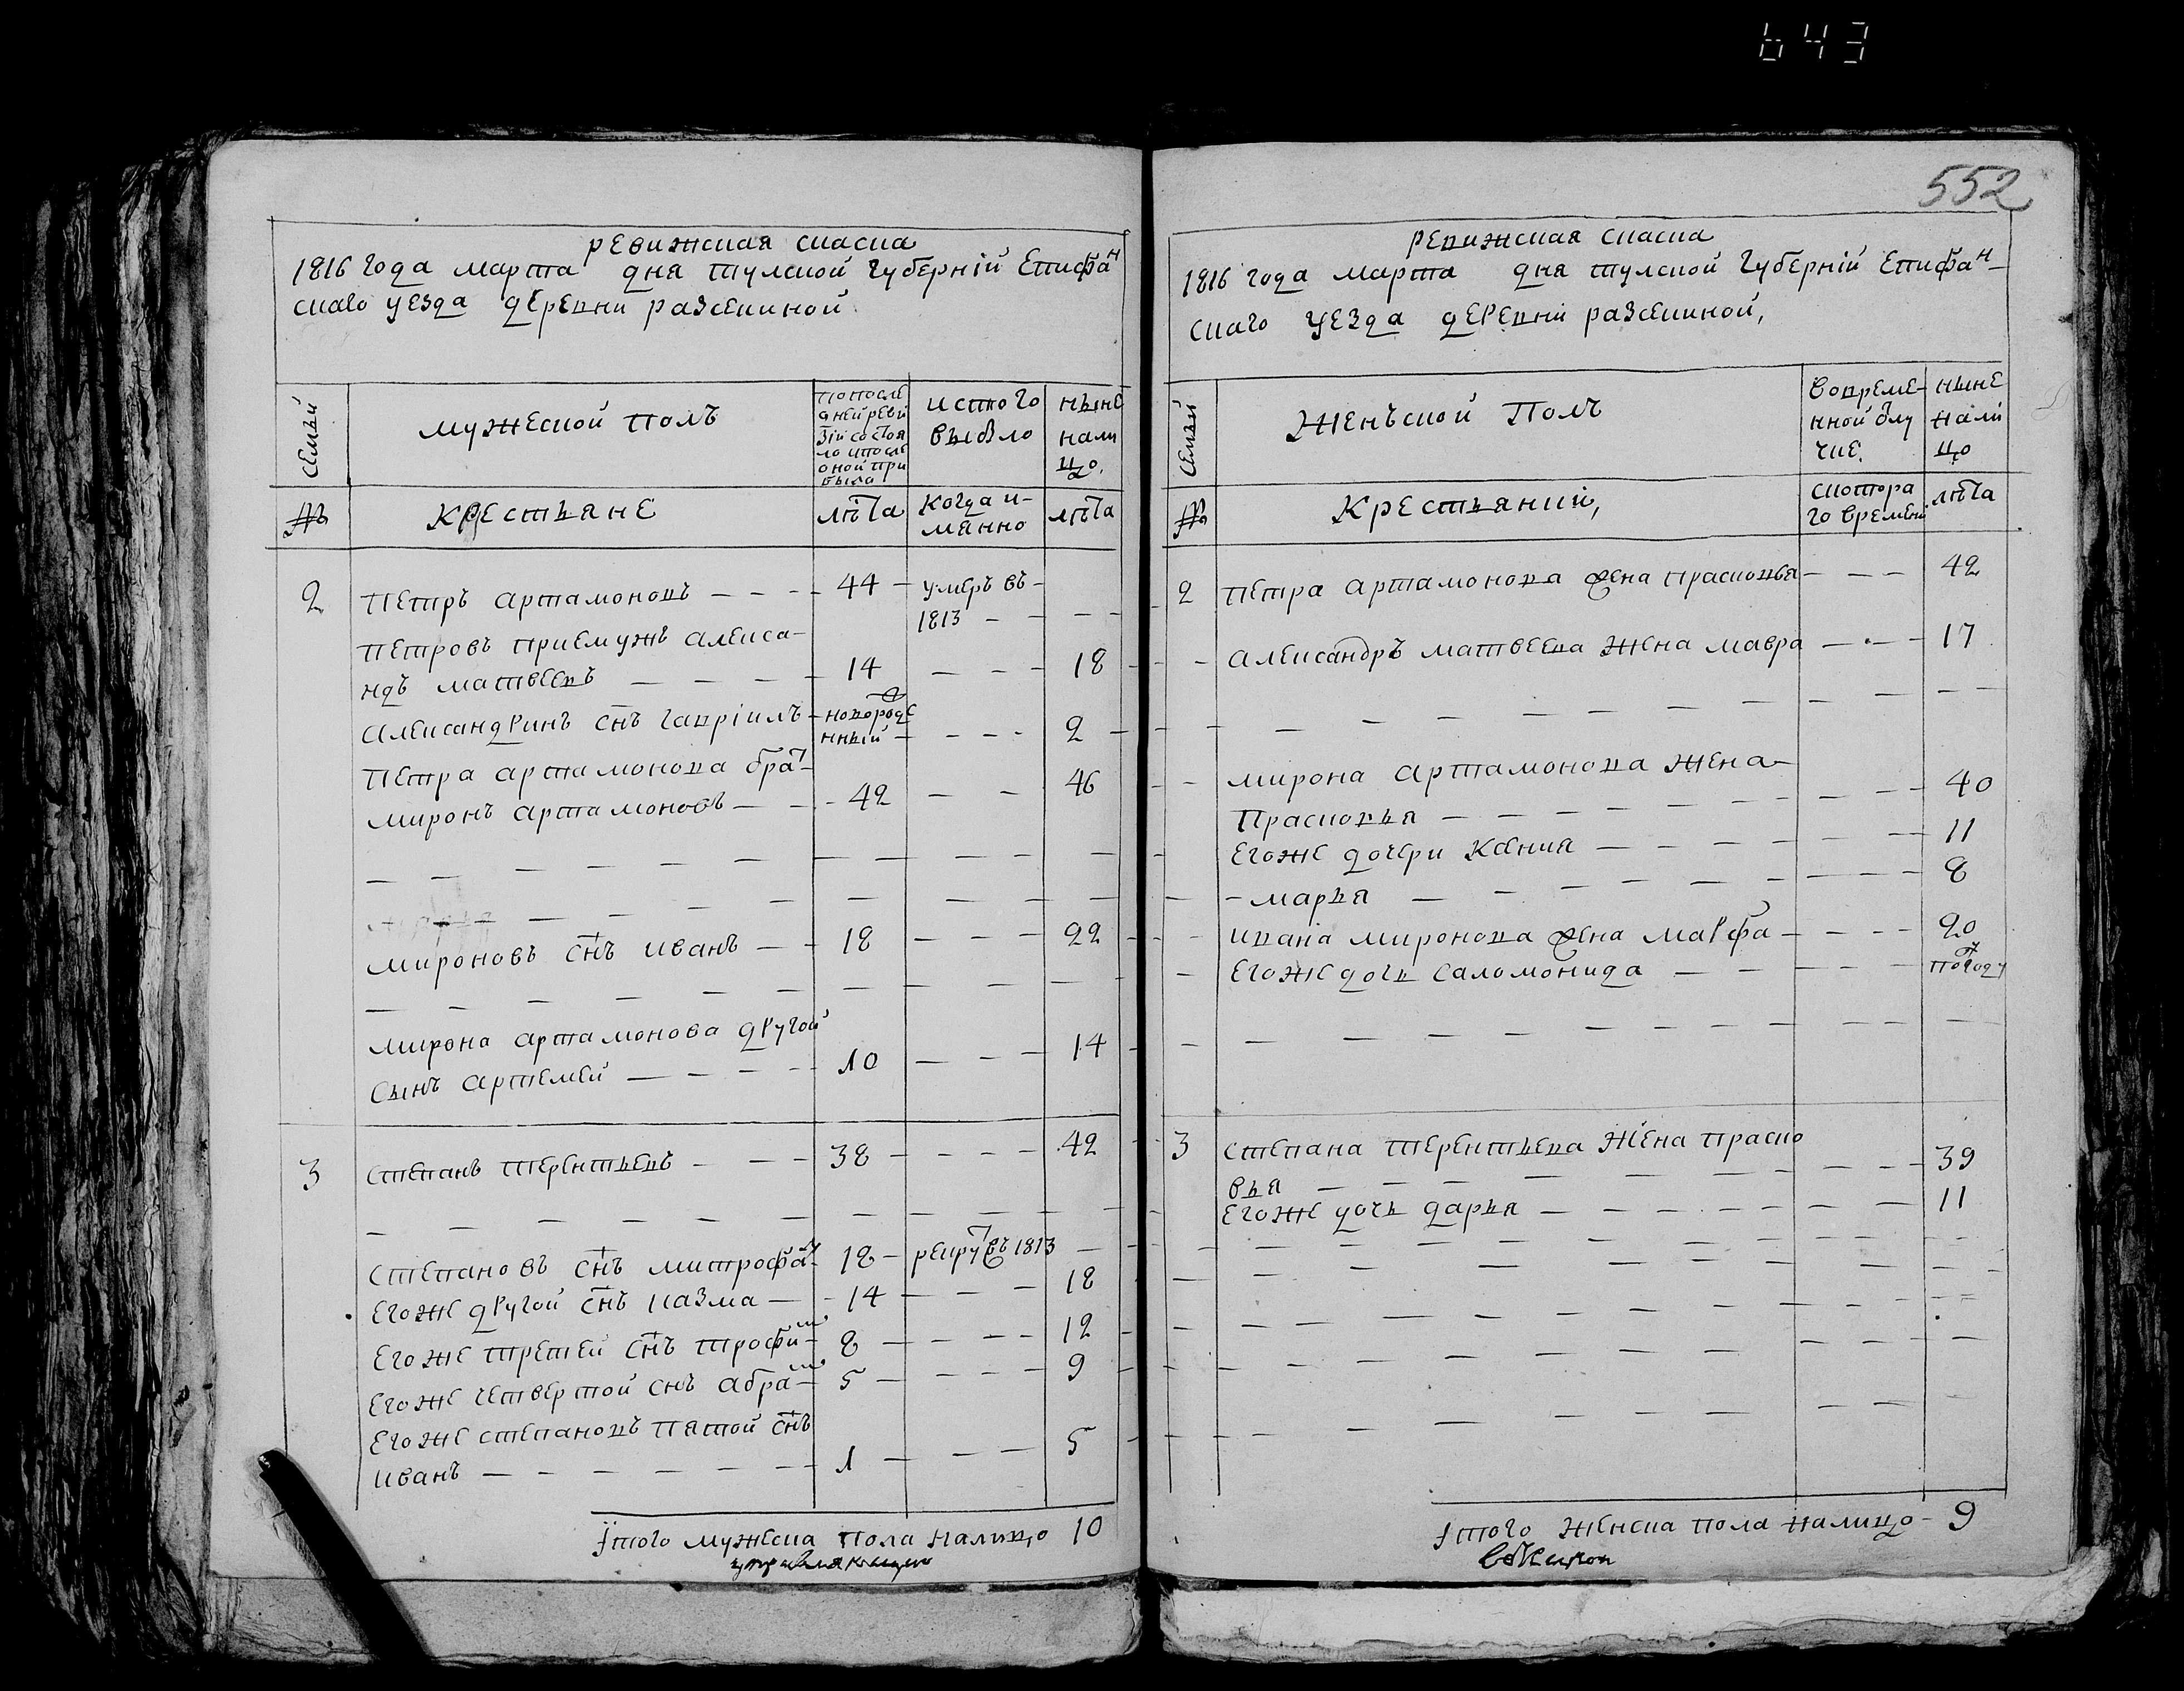 643
552
ревижская скаска
1816 года марта дня тулской губерній Епифан
скаго уезда деревни разсекиной
Семьи
мужеской полъ
по после
дней реви
зіи состоя
ло и после
оной при
было
ис того
выбыло
ныне
нали
цо.
№
крестьяне
лѣта
когда и-
мянно
лѣта
2 Петръ артамоновъ - - - 44 - умеръ въ -
1813 - - - -
Петровъ приемужъ алекса-
ндъ матвеевъ - - - - 14 - - - 18
Александринъ снъ гавріилъ - новорожде
нный - - - - 2
Петра артамонова брат
миронъ артамоновъ - - - 42 - - 46
мироновъ снъ иванъ - - 18 - - - 22
мирона артамонова другой
сынъ артемей - - - - 10 - - - 14
3 степанъ терентьевъ - - - 38 - - - - 42
степановъ снъ митрофан - 18 - рекрут въ 1813 -
егоже другой снъ казма - - 14 - - - 18
егоже третей снъ трофим - 8 - - - - 12
егоже четвертой снъ абрам - 5 - - - - 9
егоже степановъ пятой снъ
иванъ - - - - - - - 1 - - - 5
Jтого мужеска пола налицо 10
ревижская скаска
1816 года марта дня тулской губерній Епифан-
скаго уезда деревні разсекиной,
Семьи
Женъской Полъ
во време-
нной отлу
чке.
ныне
нали
цо
№
Крестьянки,
с котора
го времени
лѣта
2 петра артамонова жена прасковья - - - 42
александръ матвеева жена мавра - - - 17
мирона артамонова жена -
Прасковья - - - - 40
егоже дочери Ксения - - - - 11
- марья - - - - - 8
ивана миронова жена марфа - - - - 20
егоже дочь саломонида - - - - - погоду
3 степана терентьева жена праско
вья - - - - - - 39
егоже дочь дарья - - - - - - 11
Jтого женска пола налицо - 9